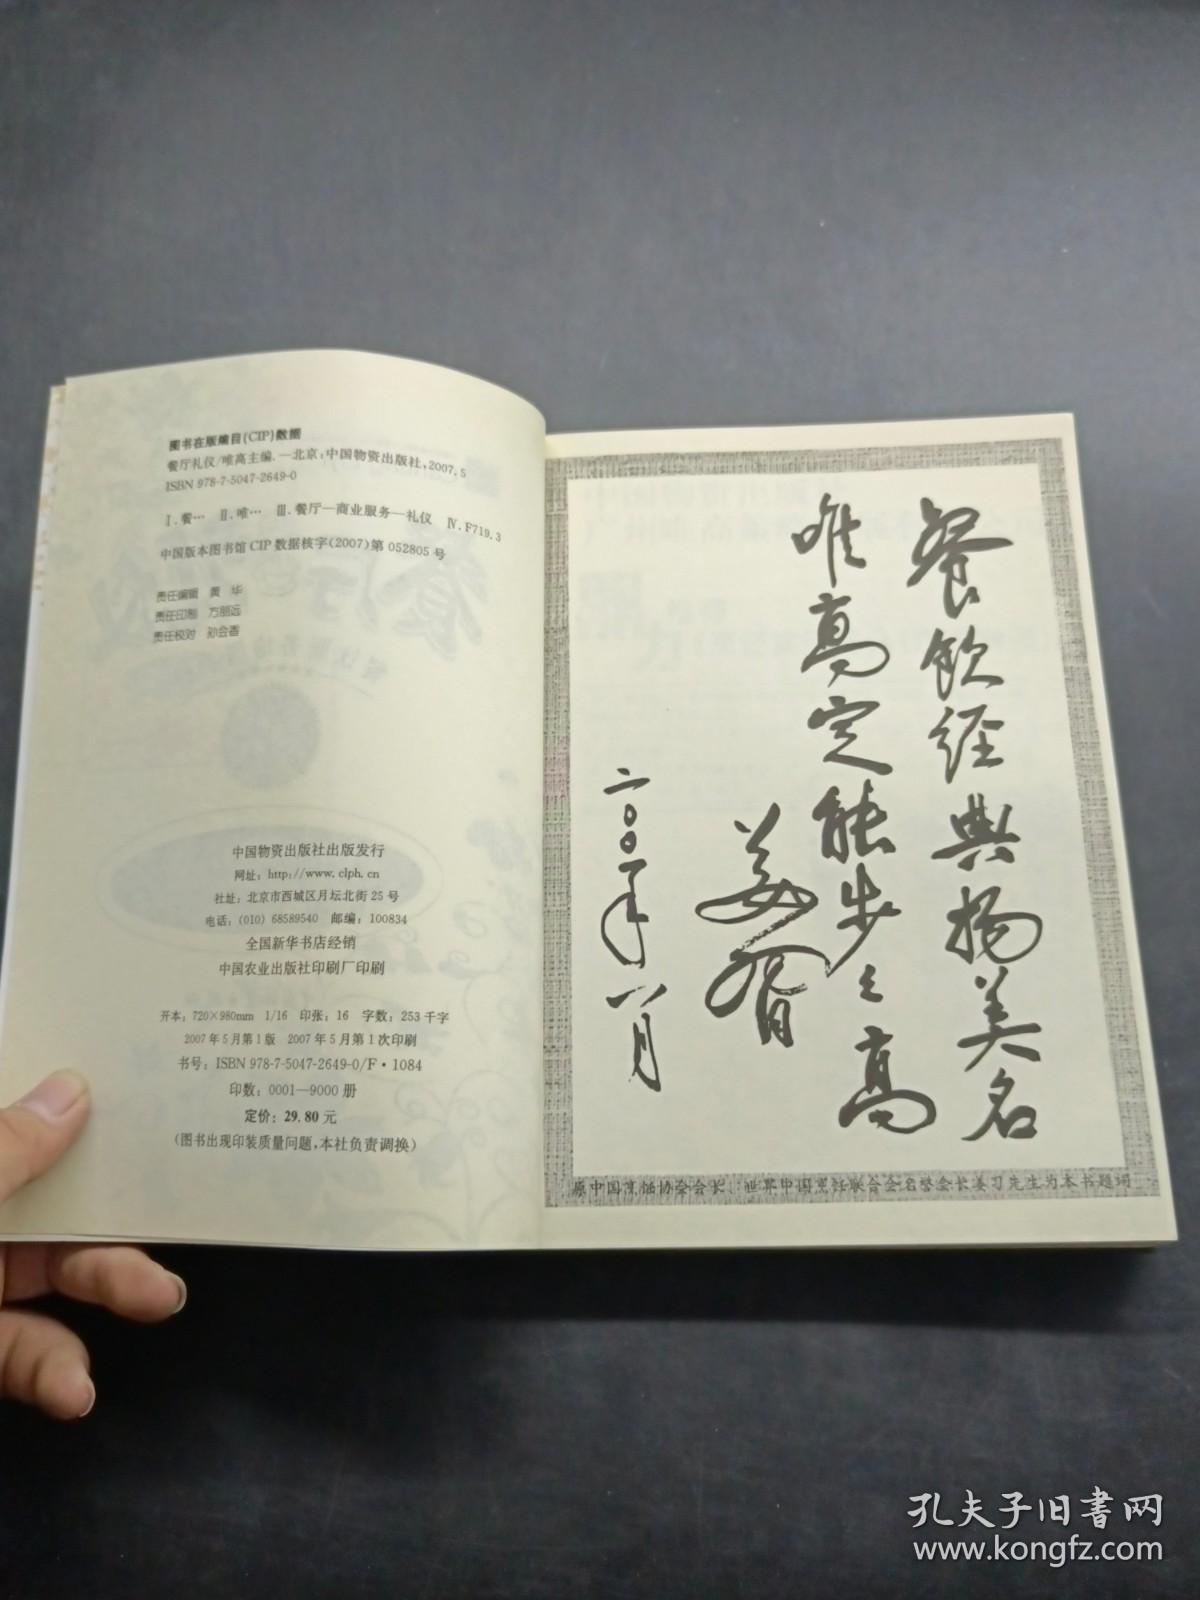 图书在版编目(CIP)数据
餐厅礼仪/唯高主编.—北京:中国物资出版社,2007.5
ISBN 978-7-5047-2649-0
Ⅰ.餐… Ⅱ.唯… Ⅲ.餐厅—商业服务—礼仪 Ⅳ.F719.3
中国版本图书馆 CIP 数据核字(2007)第 052805 号
责任编辑 黄 华
责任印制 方朋远
责任校对 孙会香
中国物资出版社出版发行
网址: http://www.clph.cn
社址: 北京市西城区月坛北街 25 号
电话: (010) 68589540 邮编: 100834
全国新华书店经销
中国农业出版社印刷厂印刷
开本: 720×980mm 1/16 印张: 16 字数: 253 千字
2007 年 5 月第 1 版 2007 年 5 月第 1 次印刷
书号: ISBN 978-7-5047-2649-0/F·1084
印数: 0001—9000 册
定价: 29.80 元
(图书出现印装质量问题,本社负责调换)
餐饮经典扬美名
唯高定能步之高
姜习
二〇〇年八月
原中国烹饪协会会长、世界中国烹饪联合会名誉会长姜习先生为本书题词
孔夫子旧书网
www.kongfz.com